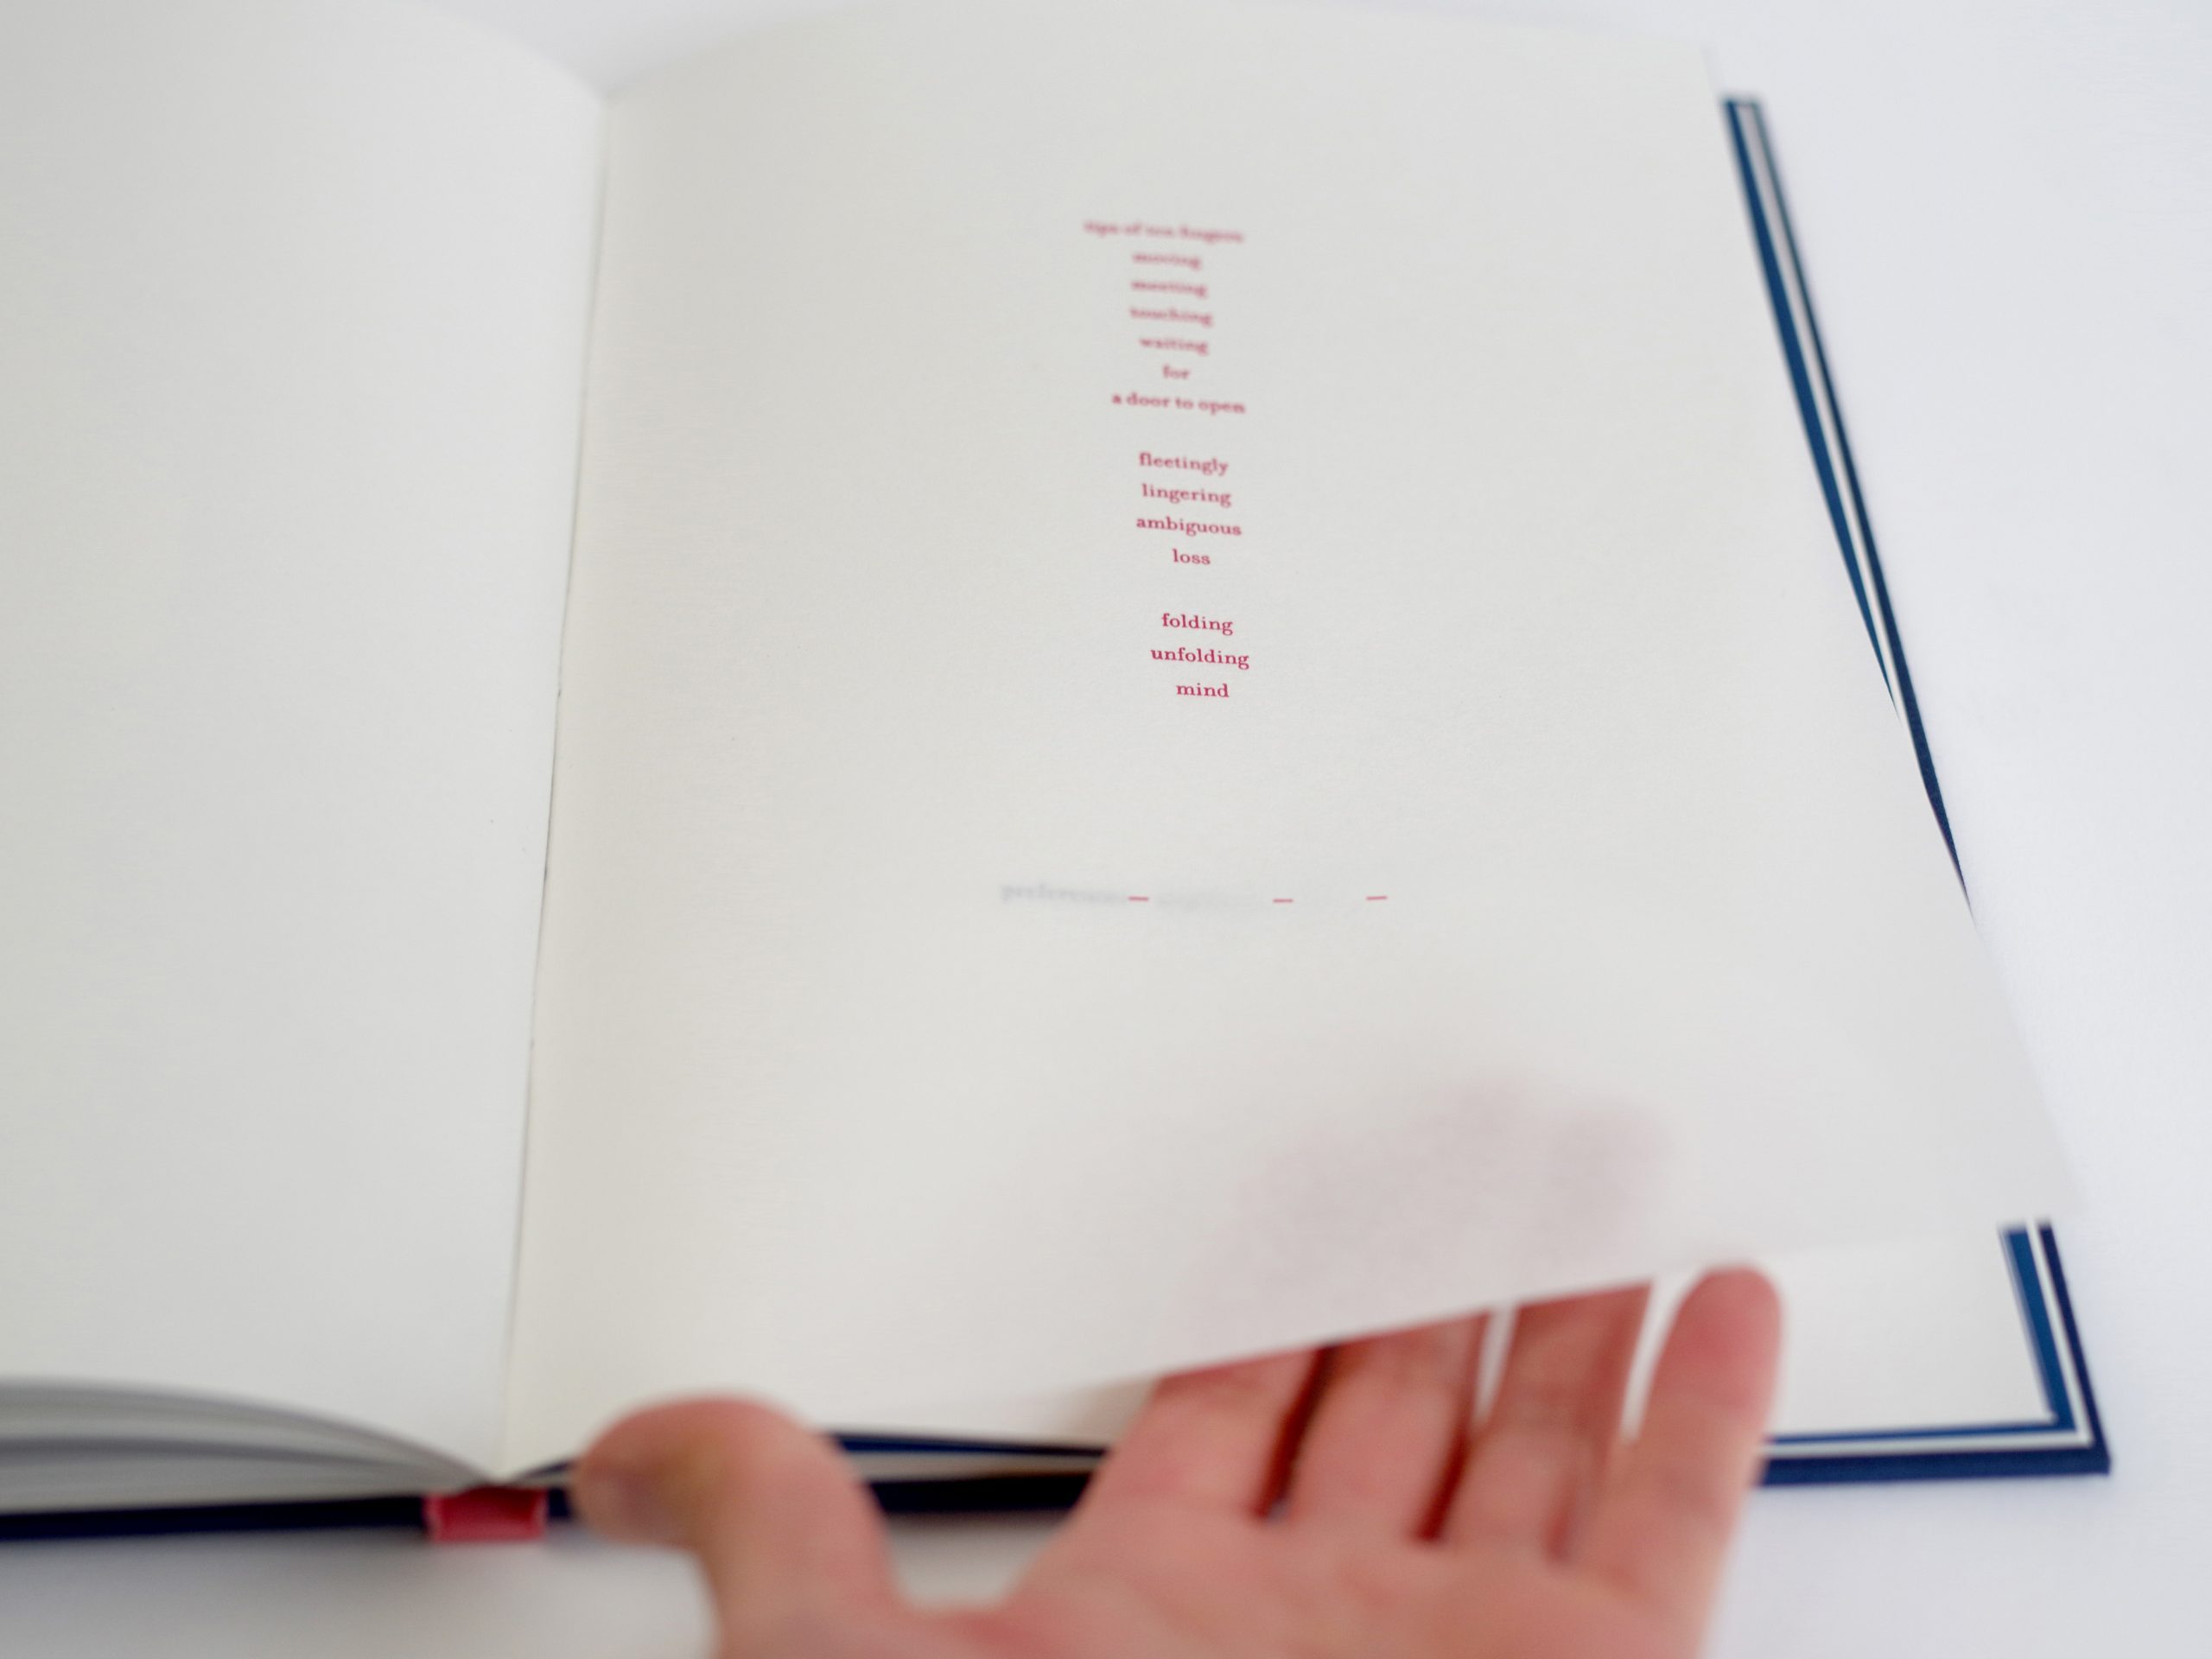 tips of ten fingers
moving
meeting
touching
waiting
for
a door to open
fleetingly
lingering
ambiguous
loss
folding
unfolding
mind
— — —